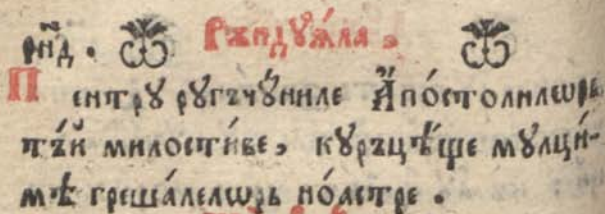 рнд҃. Рѫндꙋѧ́ла,
Пентрꙋ рꙋгъчꙋ́ниле А҆по́столилѡрь,
тъ́й милости́ве, кꙋръцѣ́ще мꙋлци́-
мѣ греша́лелѡрь но́астре.